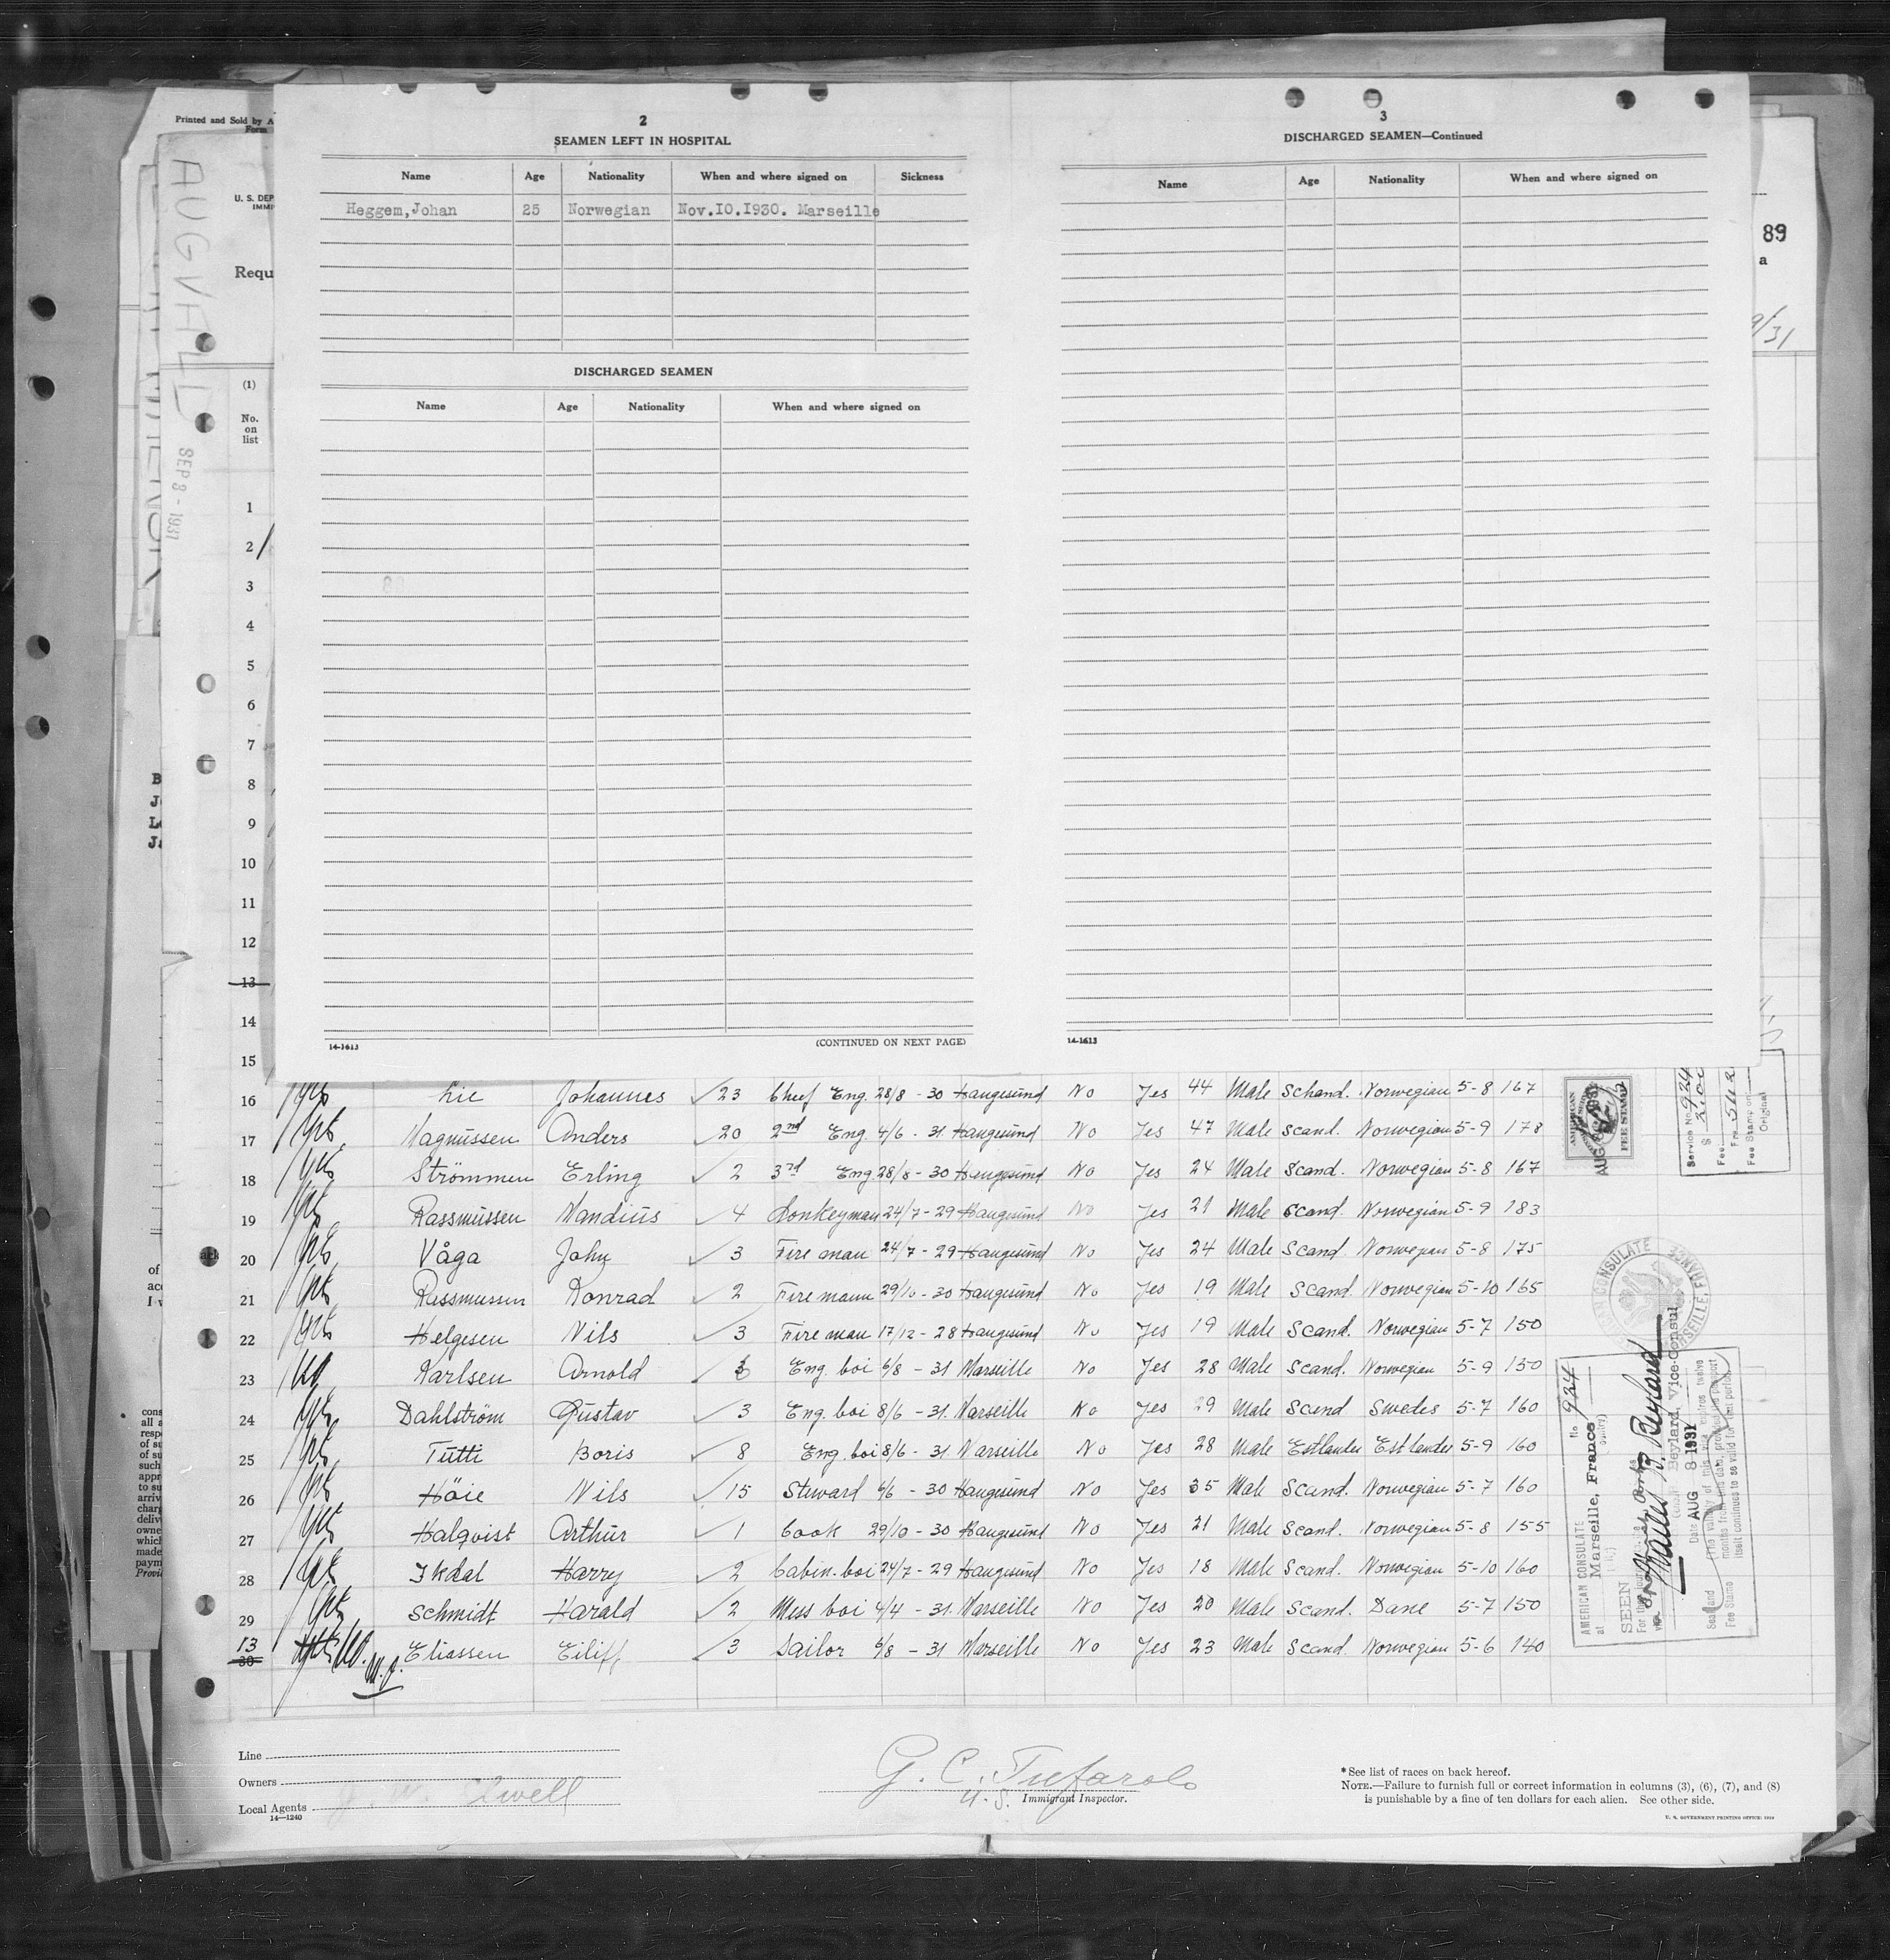 Printed and Sold by A
Form
U. S. DEP
IMMI
Requ
AUGVALL
SEP 8 - 1931
2
SEAMEN LEFT IN HOSPITAL
Name Age Nationality When and where signed on Sickness
Heggem, Johan 25 Norwegian Nov.10.1930. Marseille
DISCHARGED SEAMEN
Name Age Nationality When and where signed on
14-1613 (CONTINUED ON NEXT PAGE)
3
DISCHARGED SEAMEN—Continued
Name Age Nationality When and where signed on
14-1613
89
a
9/31
(1)
No.
on
list
1
2
3
4
5
6
7
8
9
10
11
12
13
14
15
16 Lie Johannes 23 Chief Eng. 28/8 - 30 Haugesund No Yes 44 Male Schand. Norwegian 5-8 167
17 Magnussen Anders 20 2nd Eng. 4/6 - 31 Haugesund No Yes 47 Male Scand. Norwegian 5-9 178
18 Strömmen Erling 2 3rd Eng 28/8 - 30 Haugesund No Yes 24 Male Scand. Norwegian 5-8 167
19 Rassmussen Nandius 4 Donkeyman 24/7 - 29 Haugesund No Yes 21 Male Scand. Norwegian 5-9 183
20 Våga John 3 Fire man 24/7 - 29 Haugesund No Yes 24 Male Scand. Norwegian 5-8 175
21 Rassmussen Konrad 2 Fire mann 29/10 - 30 Haugesund No Yes 19 Male Scand. Norwegian 5-10 165
22 Helgesen Nils 3 Fire man 17/12 - 28 Haugesund No Yes 19 Male Scand. Norwegian 5-7 150
23 Karlsen Arnold Eng. boi 6/8 - 31 Marseille No Yes 28 Male Scand. Norwegian 5-9 150
24 Dahlström Gustav 3 Eng. boi 8/6 - 31. Marseille No Yes 29 Male Scand Swedes 5-7 160
25 Tutti Boris 8 Eng. boi 8/6 - 31. Marseille No Yes 28 Male Estlander Estlander 5-9 160
26 Höie Nils 15 Steward 6/6 - 30 Haugesund No Yes 35 Male Scand. Norwegian 5-7 160
27 Halqvist Arthur 1 Cook 29/10 - 30 Haugesund No Yes 21 Male Scand. Norwegian 5-8 155
28 Ikdal Harry 2 Cabin-boi 24/7 - 29 Haugesund No Yes 18 Male Scand. Norwegian 5-10 160
29 Schmidt Harald 2 Mess boi 4/4 - 31. Marseille No Yes 20 Male Scand. Dane 5-7 150
13 30 Eliassen Eiliff 3 Sailor 6/8 - 31 Marseille No Yes 23 Male Scand. Norwegian 5-6 140
Service No. 924
Fee Stamp on
Original
AMERICAN CONSULATE
at Marseille, France
No 924
SEEN
Beylard, Vice-Consul
Date AUG 8 1931
Fee Stamp
Line
Owners
Local Agents
14—1240
G. C. Tufarolo
U. S. Immigrant Inspector.
* See list of races on back hereof.
NOTE.—Failure to furnish full or correct information in columns (3), (6), (7), and (8)
is punishable by a fine of ten dollars for each alien. See other side.